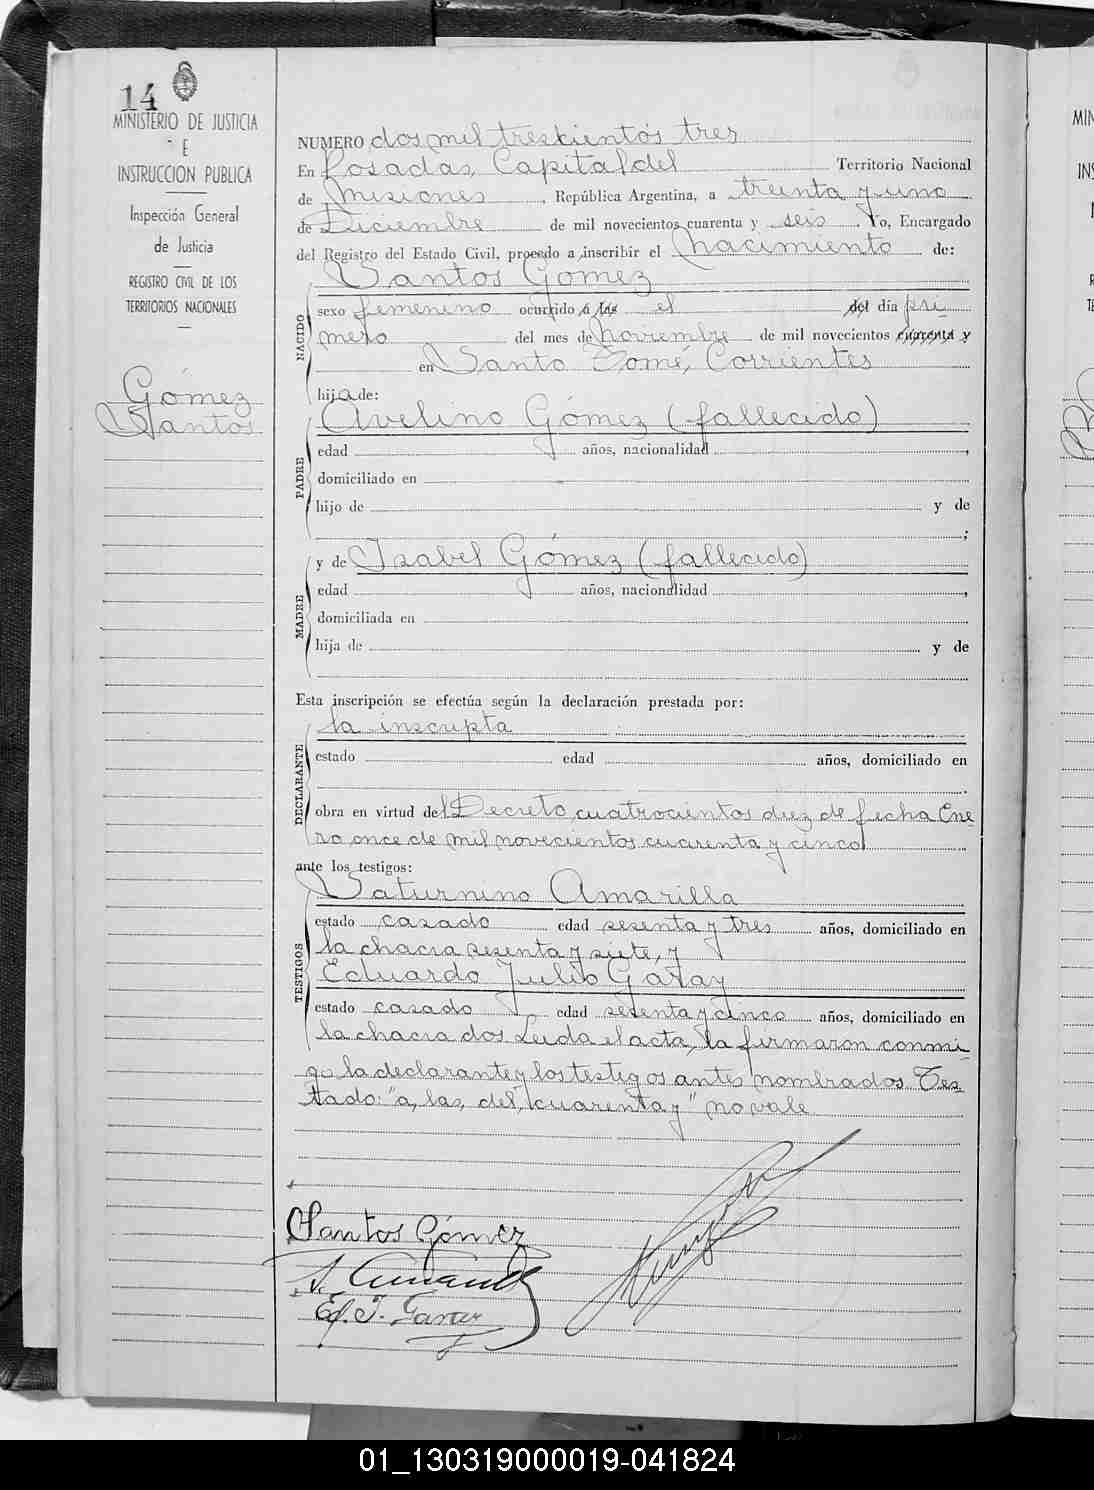 14
MINISTERIO DE JUSTICIA
E
INSTRUCCION PUBLICA
Inspección General
de Justicia
REGISTRO CIVIL DE LOS
TERRITORIOS NACIONALES
Gómez
Santos
NUMERO dos mil trescientos tres
En Posadas, Capital del Territorio Nacional
de Misiones, República Argentina, a treinta y uno
de Diciembre de mil novecientos cuarenta y seis Yo, Encargado
del Registro del Estado Civil, procedo a inscribir el nacimiento de:
Santos Gómez
NACIDO
sexo femenino ocurrido a las el del día pri
mero del mes de Noviembre de mil novecientos cuarenta y
en Santo Tomé, Corrientes
hija de:
Avelino Gómez (fallecido)
PADRE
edad años, nacionalidad ,
domiciliado en
hijo de y de
;
y de Isabel Gómez (fallecido)
MADRE
edad años, nacionalidad ,
domiciliada en
hija de y de
Esta inscripción se efectúa según la declaración prestada por:
la inscripta
DECLARANTE
estado edad años, domiciliado en
obra en virtud del Decreto cuatrocientos diez de fecha Ene-
ro once de mil novecientos cuarenta y cinco
ante los testigos:
Saturnino Amarilla
TESTIGOS
estado casado edad sesenta y tres años, domiciliado en
la chacra sesenta y siete, y
Eduardo Julio Garay
estado casado edad sesenta y cinco años, domiciliado en
la chacra dos Leida el acta, la firmaron conmi-
go la declarante y los testigos antes nombrados. Tes-
tado: "a, las, del, cuarenta y" no vale
Santos Gómez
Ed. J. Garay
01_130319000019-041824